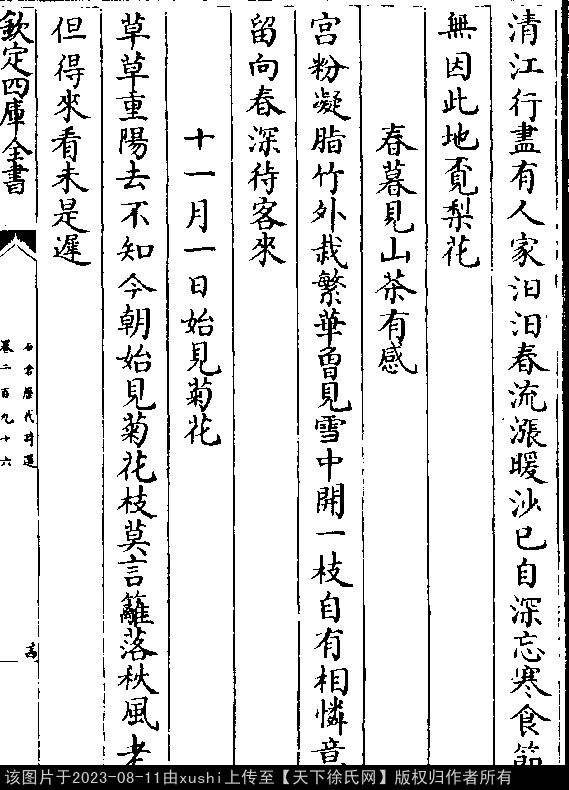 清江行盡有人家汩汩春流漲暖沙已自深忘寒食節
無因此地覔梨花
春暮見山茶有感
宫粉凝脂竹外栽繁華曾見雪中開一枝自有相憐意
留向春深待客來
十一月一日始見菊花
草草重陽去不知今朝始見菊花枝莫言籬落秋風老
但得來看未是遲
欽定四庫全書
石倉歷代詩選
卷二百九十六
该图片于2023-08-11由xushi上传至【天下徐氏网】版权归作者所有